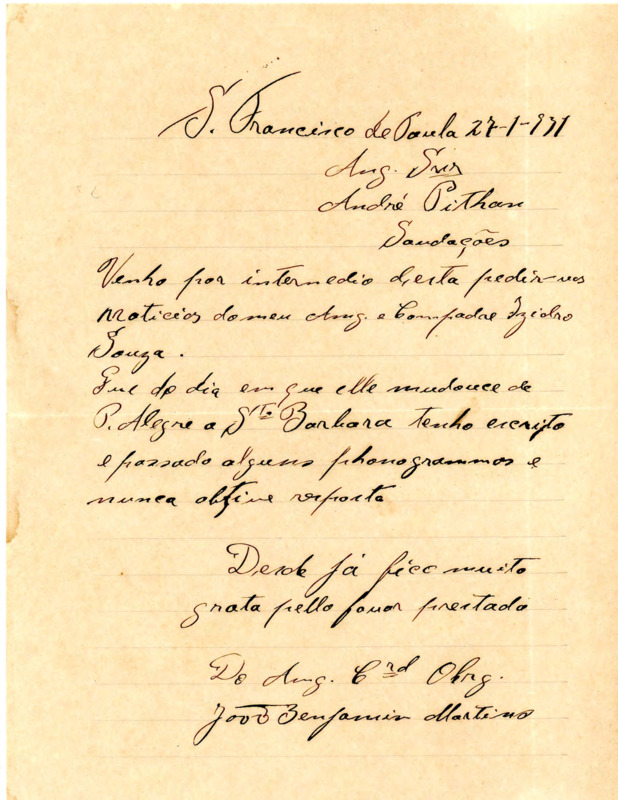 S. Francisco de Paula 27-1-931
Amg. Snr
André Pithan
Saudações
Venho por intermedio desta pedir-vos
noticias do meu Amg. e Compadre Izidro
Souza.
Que do dia em que elle mudouce de
P. Alegre a Sta Barbara tenho escripto
e passado alguns phonogrammas e
nunca obtive resposta
Desde já fico muito
grato pello favor prestado
Do Amg. Crd Obrg.
João Benjamin Martins